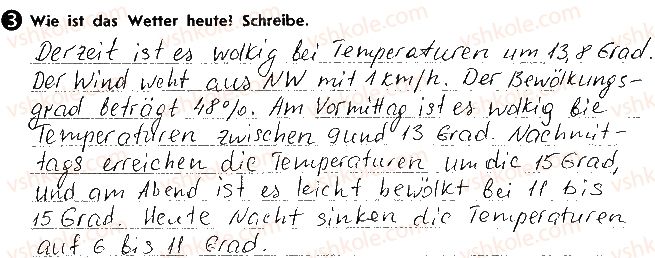 3 Wie ist das Wetter heute? Schreibe.
Derzeit ist es wolkig bei Temperaturen um 13,8 Grad.
Der Wind weht aus NW mit 1 km/h. Der Bewölkungs-
grad beträgt 48%. Am Vormittag ist es wolkig bie
Temperaturen zwischen 9 und 13 Grad. Nachmit-
tags erreichen die Temperaturen um die 15 Grad,
und am Abend ist es leicht bewölkt bei 11 bis
15 Grad. Heute Nacht sinken die Temperaturen
auf 6 bis 11 Grad.